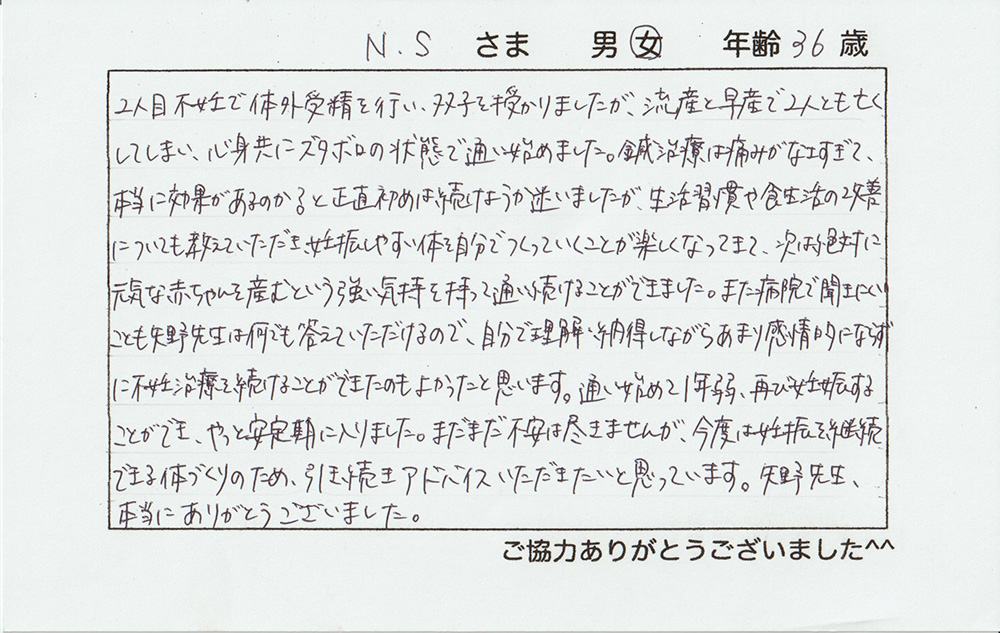 N.S さま 男 女 年齢 36 歳
2人目不妊で体外受精を行い、双子を授かりましたが、流産と早産で2人とも亡く
してしまい、心身共にズタボロの状態で通い始めました。鍼治療は痛みがなさすぎて、
本当に効果があるのかなと正直初めは続けようか迷いましたが、生活習慣や食生活の改善
についても教えていただき、妊娠しやすい体を自分でつくっていくことが楽しくなってきて、次は絶対に
元気な赤ちゃんを産むという強い気持を持って通い続けることができました。また病院で聞きにくい
ことも矢野先生は何でも答えていただけるので、自分で理解・納得しながらあまり感情的にならず
に不妊治療を続けることができたのもよかったと思います。通い始めて1年弱、再び妊娠する
ことができ、やっと安定期に入りました。まだまだ不安は尽きませんが、今度は妊娠を継続
できる体づくりのため、引き続きアドバイスいただきたいと思っています。矢野先生、
本当にありがとうございました。
ご協力ありがとうございました^^